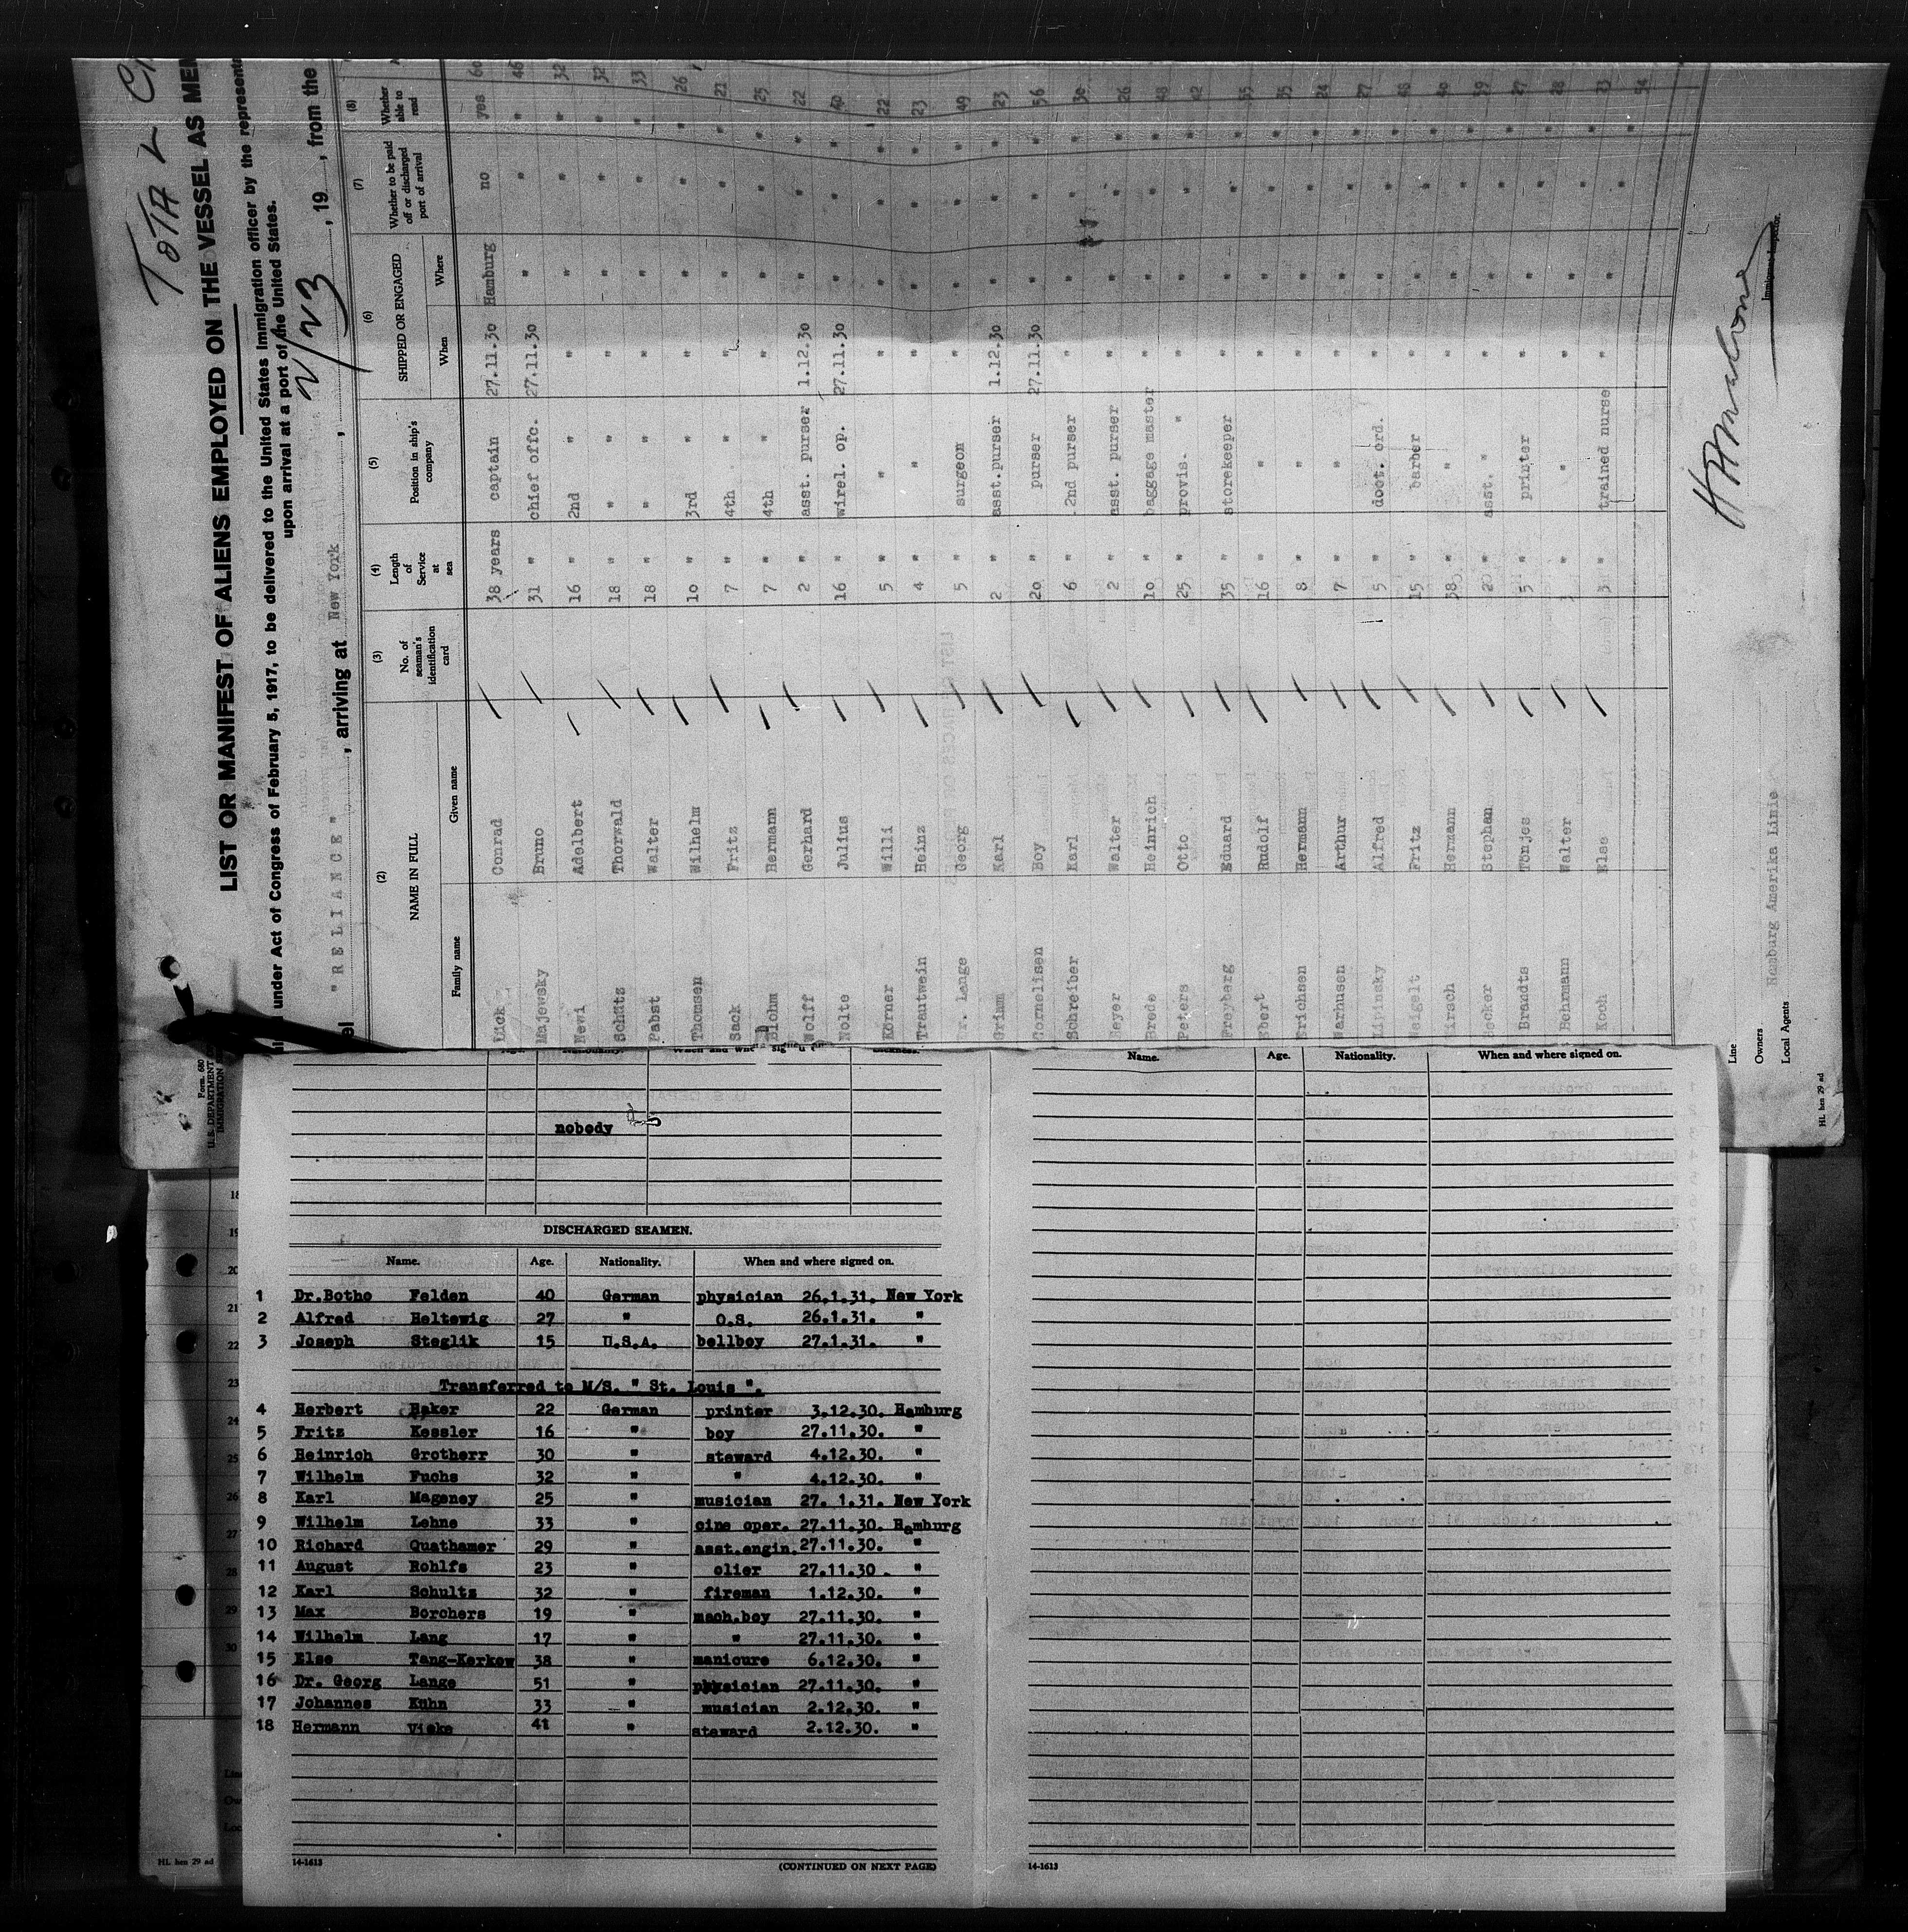 TOTAL
LIST OR MANIFEST OF ALIENS EMPLOYED ON THE VESSEL AS MEM
under Act of Congress of February 5, 1917, to be delivered to the United States immigration officer by the representa
upon arrival at a port of the United States.
"RELIANCE", arriving at New York, 19, from the
(2) (3) (4) (5) (6) (7) (8)
NAME IN FULL No. of seaman's identification card Length of Service at sea Position in ship's company SHIPPED OR ENGAGED Whether to be paid off or discharged port of arrival Whether able to read
Family name Given name When Where
Conrad 38 years captain 27.11.30 Hamburg no yes 60
Majewsky Bruno 31 " chief offc. 27.11.30 " " " 46
Newi Adelbert 16 " 2nd " " " " " 32
Schütz Thorwald 18 " " " " " " 32
Pabst Walter 18 " " " " " " 33
Thomsen Wilhelm 10 " 3rd " " " " " 26
Sack Fritz 7 " 4th " " " " " 21
Blohm Hermann 7 " 4th " " " " " 25
Wolff Gerhard 2 " asst. purser 1.12.30 " " " 22
Nolte Julius 16 " wirel. op. 27.11.30 " " " 40
Körner Willi 5 " " " " " " 22
Trautwein Heinz 4 " " " " " " 23
Dr. Lange Georg 5 " surgeon " " " " 49
Grimm Karl 2 " asst.purser 1.12.30 " " " 23
Cornelisen Boy 20 " purser 27.11.30 " " " 56
Schreiber Karl 6 " 2nd purser " " " " 30
Beyer Walter 2 " asst. purser " " " " 26
Brede Heinrich 10 " baggage master " " " " 48
Peters Otto 25 " provis. " " " " " 42
Freyberg Eduard 35 " storekeeper " " " " 55
Ebert Rudolf 16 " " " " " " 35
Erichsen Hermann 8 " " " " " " 24
Warhusen Arthur 7 " " " " " " 27
Lipinsky Alfred 5 " doct. ord. " " " "
Weigelt Fritz 15 " barber " " " "
Hirsch Hermann 38 " " " " " "
Becker Stephan 20 " asst. " " " " "
Brandts Tönjes 5 " printer " " " " 27
Behrmann Walter " " " " " " 28
Koch Else 3 " trained nurse " " " "
Line
Owners Hamburg Amerika Linie
Local Agents
Immigrant Inspector.
HL hen 29 ad
Form 680
U.S. DEPARTMENT
IMMIGRATION
nobody
DISCHARGED SEAMEN.
Name. Age. Nationality. When and where signed on.
1 Dr.Botho Felden 40 German physician 26.1.31. New York
2 Alfred Heltewig 27 " O.S. 26.1.31. "
3 Joseph Steglik 15 U.S.A. bellboy 27.1.31. "
Transferred to M/S. " St. Louis ".
4 Herbert Haker 22 German printer 3.12.30. Hamburg
5 Fritz Kessler 16 " boy 27.11.30. "
6 Heinrich Grotherr 30 " steward 4.12.30. "
7 Wilhelm Fuchs 32 " " 4.12.30. "
8 Karl Mageney 25 " musician 27. 1.31. New York
9 Wilhelm Lehne 33 " cine oper. 27.11.30. Hamburg
10 Richard Quathamer 29 " asst.engin. 27.11.30. "
11 August Rohlfs 23 " olier 27.11.30. "
12 Karl Schults 32 " fireman 1.12.30. "
13 Max Borchers 19 " mach.boy 27.11.30. "
14 Wilhelm Lang 17 " " 27.11.30. "
15 Else Tang-Kerkow 38 " manicure 6.12.30. "
16 Dr. Georg Lange 51 " physician 27.11.30. "
17 Johannes Kühn 33 " musician 2.12.30. "
18 Hermann Vieke 41 " steward 2.12.30. "
14-1613 (CONTINUED ON NEXT PAGE)
HL hen 29 ad
Name. Age. Nationality. When and where signed on.
14-1613